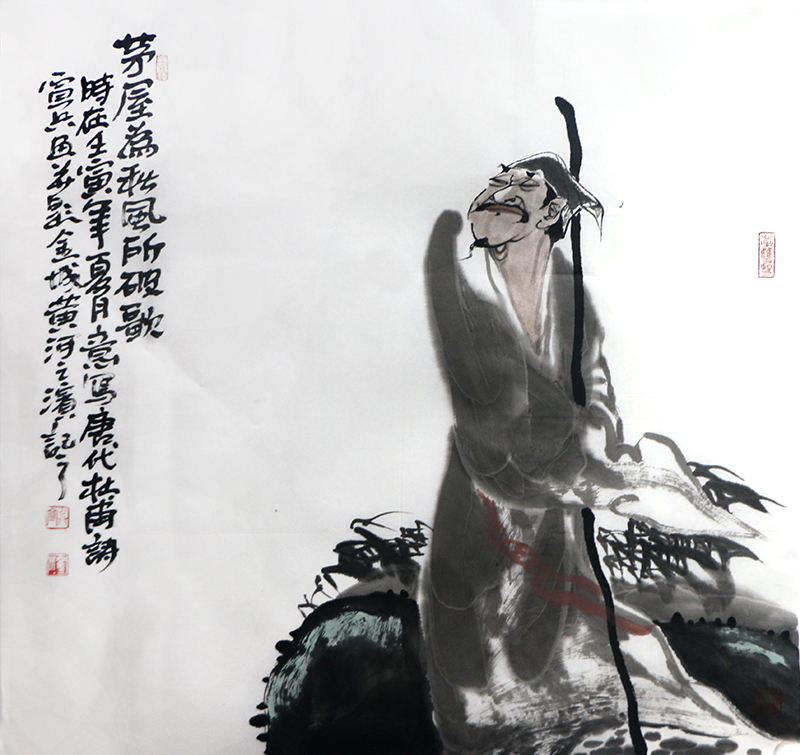 茅屋為秋風所破歌
時在壬寅年夏月意寫唐代杜甫詩
雷兵画并記金城黄河之濱記了